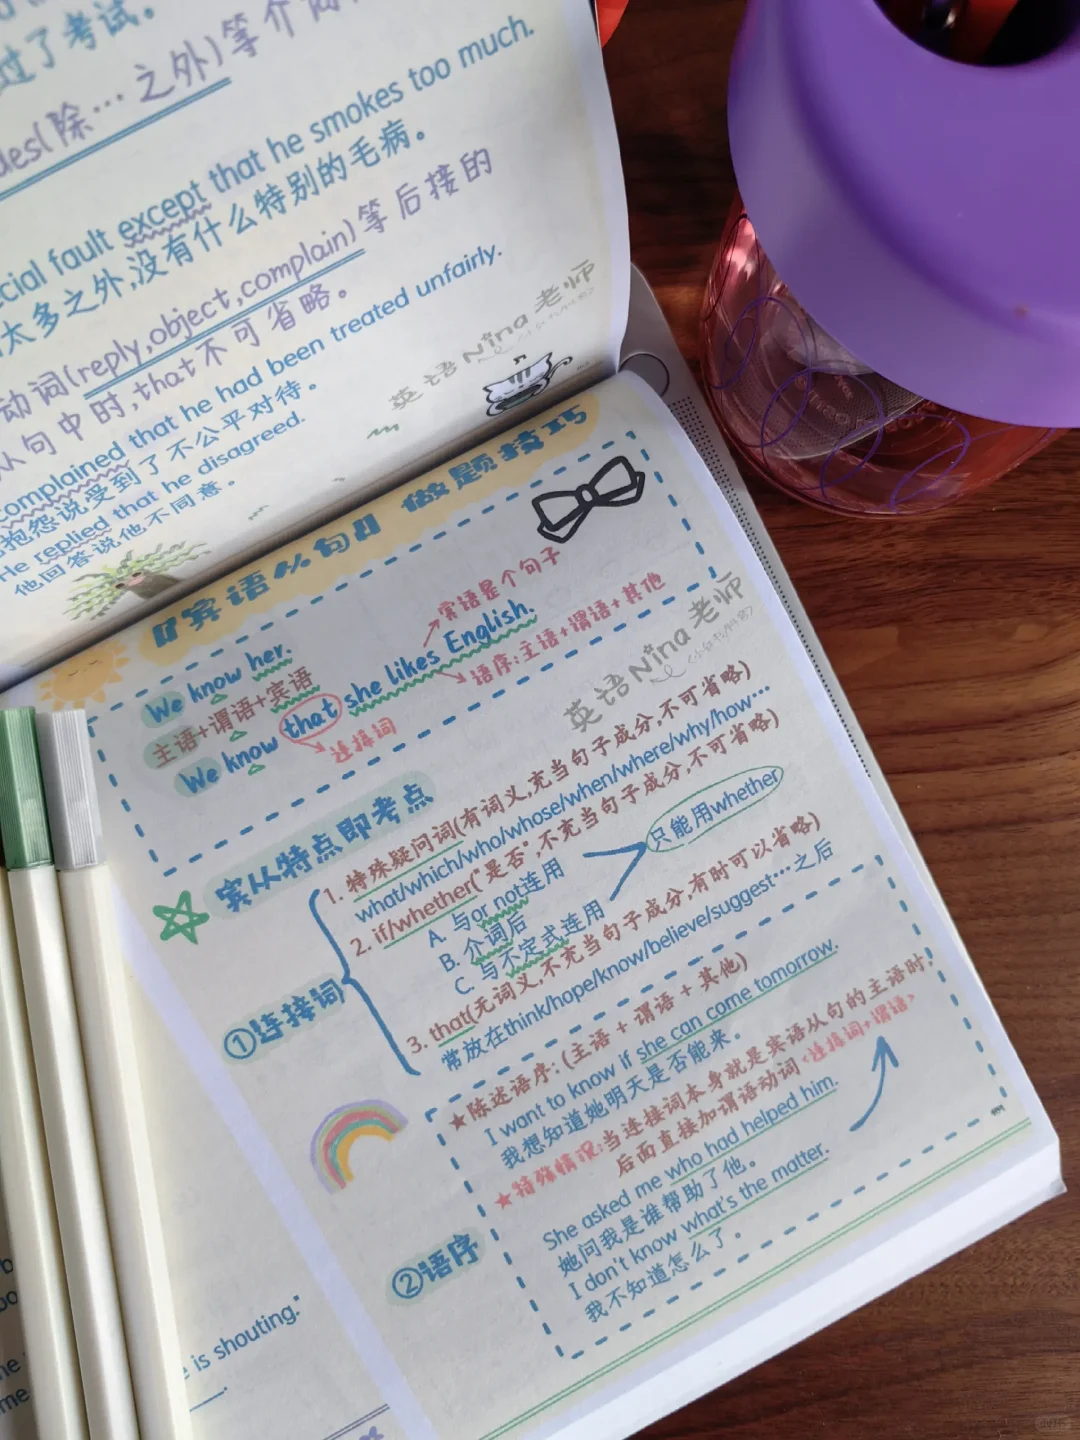 过了考试。
des(除…之外)等介
cial fault except that he smokes too much.
太多之外,没有什么特别的毛病。
动词(reply,object,complain)等后接的
从句中时,that不可省略。
complained that he had been treated unfairly.
抱怨说受到了不公平对待。
He replied that he disagreed.
他回答说他不同意。
英语Nina老师
『宾语从句』做题技巧
We know her.
主语+谓语+宾语
We know that she likes English.
连接词
宾语是个句子
语序:主语+谓语+其他
英语Nina老师
宾从特点即考点
①连接词
1. 特殊疑问词(有词义,充当句子成分,不可省略)
what/which/who/whose/when/where/why/how…
2. if/whether("是否",不充当句子成分,不可省略)
A. 与or not连用
B. 介词后
C. 与不定式连用
只能用whether
3. that(无词义,不充当句子成分,有时可以省略)
常放在think/hope/know/believe/suggest…之后
②语序
★陈述语序:(主语 + 谓语 + 其他)
I want to know if she can come tomorrow.
我想知道她明天是否能来。
★特殊情况:当连接词本身就是宾语从句的主语时,
后面直接加谓语动词<连接词+谓语>
She asked me who had helped him.
她问我是谁帮助了他。
I don't know what's the matter.
我不知道怎么了。
e is shouting."